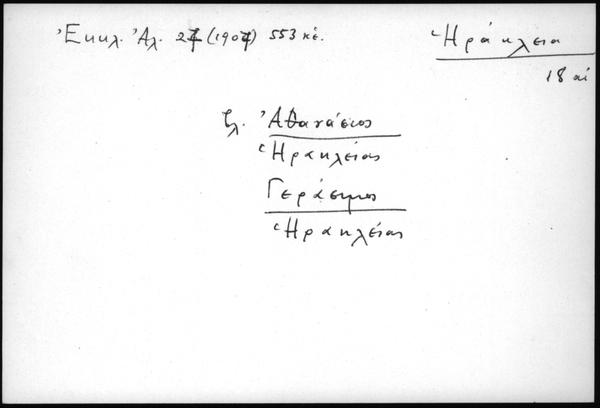 Ἐκκλ. Ἀλ. 27 (1907) 553 κἑ.
Ἡράκλεια
18 αἰ
βλ. Ἀθανάσιος
Ἡρακλείας
Γεράσιμος
Ἡρακλείας